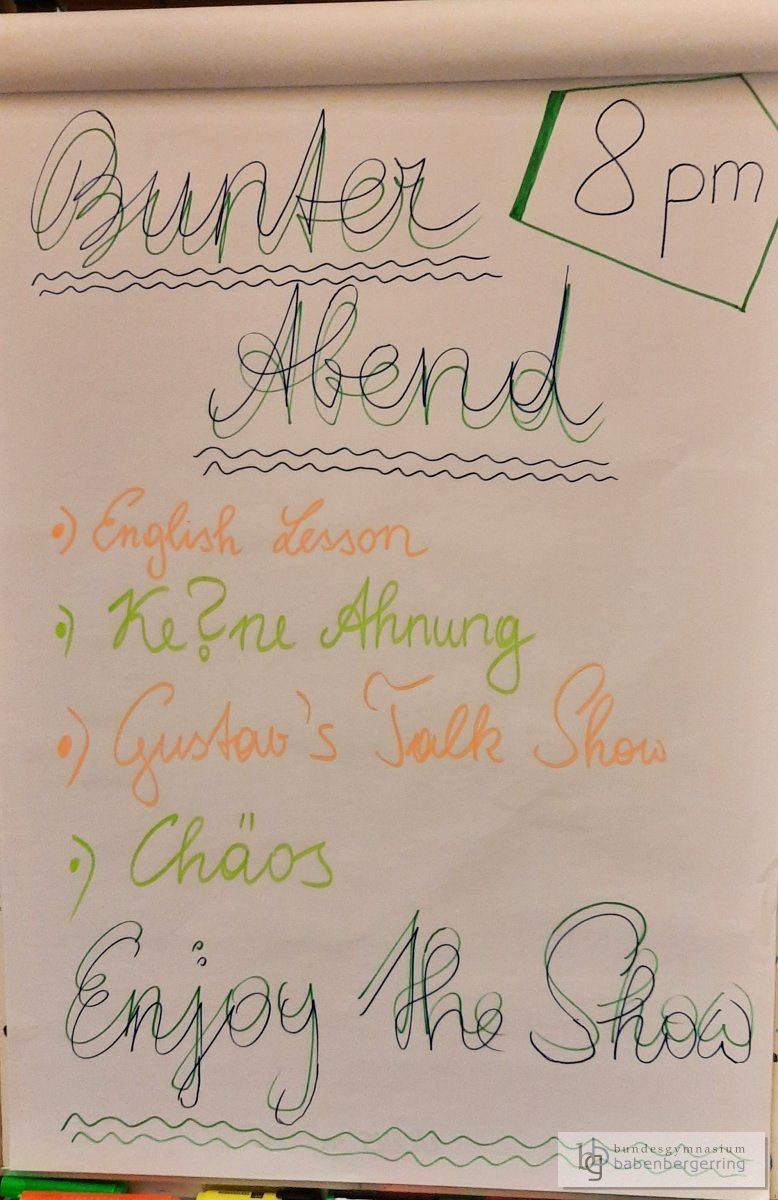 Bunter
8 pm
Abend
•) English Lesson
•) Ke?ne Ahnung
•) Gustav's Talk Show
•) Chäos
Enjoy the Show
bg bundesgymnasium
babenbergerring